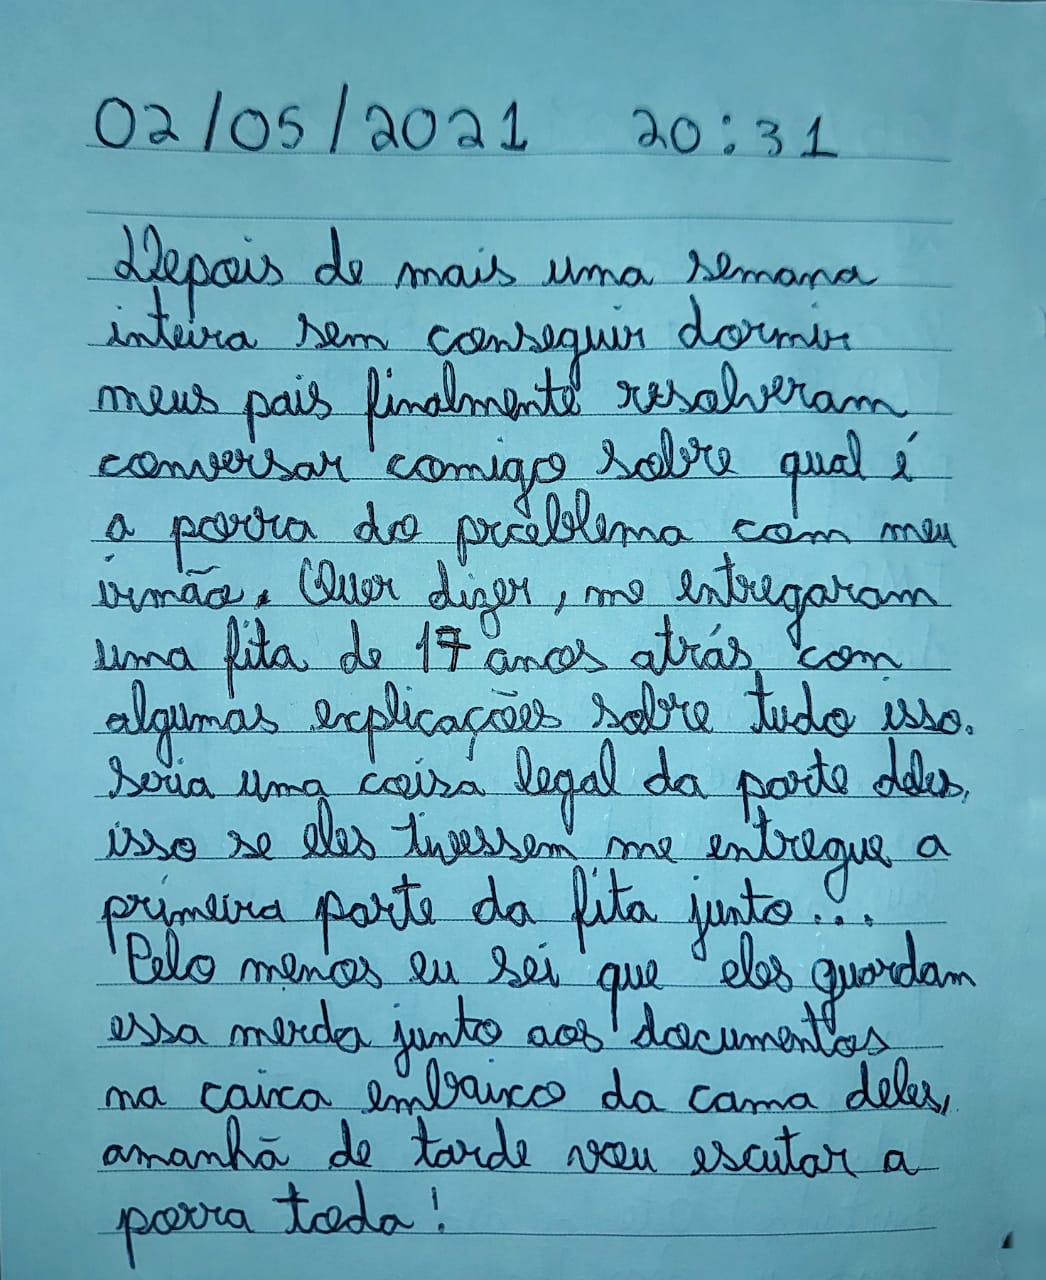 02/05/2021 20:31
Depois de mais uma semana
inteira sem conseguir dormir
meus pais finalmente resolveram
conversar comigo sobre qual é
a porra do problema com meu
irmão. Quer dizer, me entregaram
uma fita de 17 anos atrás com
algumas explicações sobre tudo isso.
Seria uma coisa legal da parte deles,
isso se eles tivessem me entregue a
primeira parte da fita junto...
Pelo menos eu sei que eles guardam
essa merda junto aos documentos
na caixa embaixo da cama deles,
amanhã de tarde vou escutar a
porra toda!